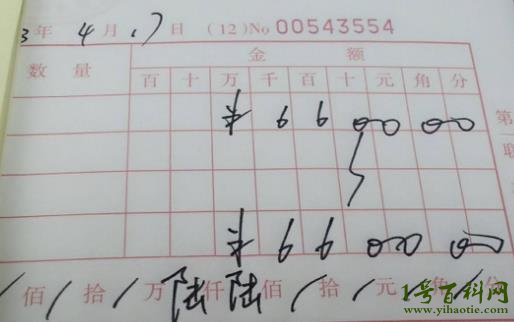 3年 4月 17日 (12)No 00543554
数量 金额
百 十 万 千 百 十 元 角 分
¥ 6 6 0 0 0 0
第
联
¥ 6 6 0 0 0 0
/佰/拾/万陆仟陆佰/拾/元/角/分
1号百科网
www.yihaotie.com